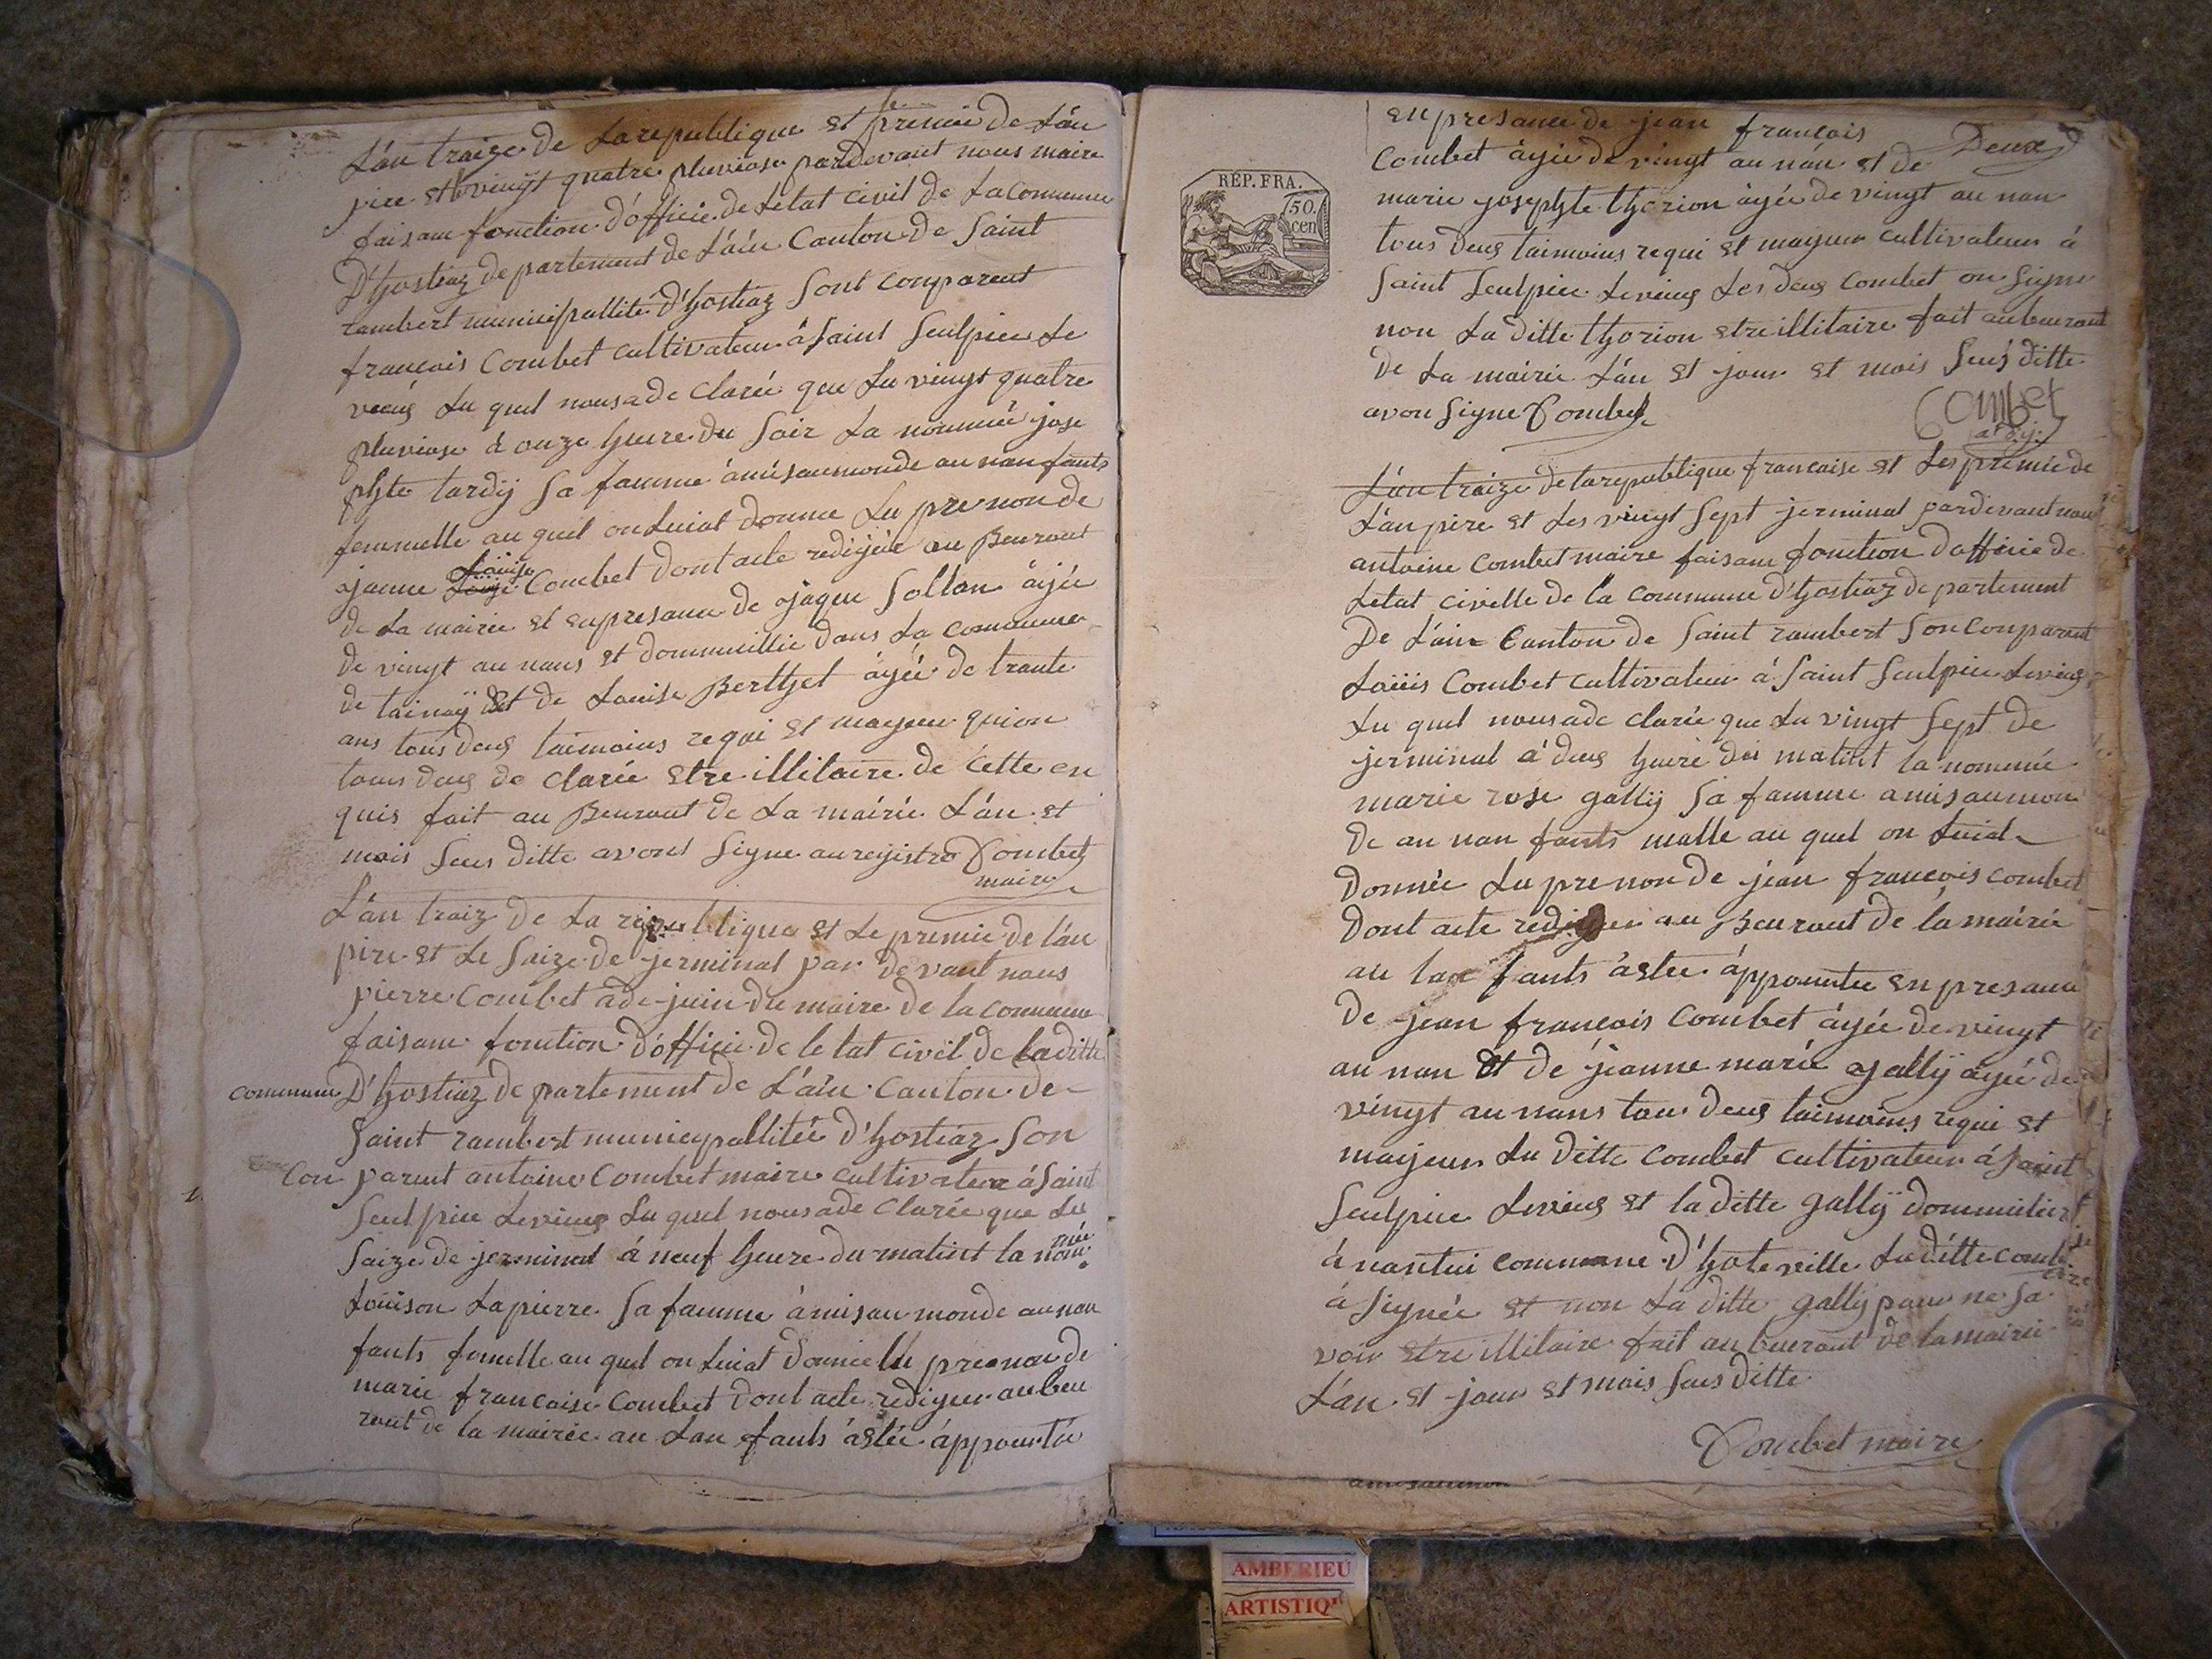 L'an traize de La republique et le premie de L'an
pire et le vingt quatre pluviose pardevant nous maire
faisant fonction d'officie de L'etat civil de La Comunne
D'hostiaz departement de L'ain Canton de Saint
rambert municipallité D'hostiaz Sont Comparent
françois Combet cultivateur à Saint Seulpice Le
vieus Lu quel nous a de Clarée que Lu vingt quatre
pluviose à onze heure du Soir La nommée jose
phte tardij Sa famme à mis au monde au nanfants
femmelle au quel on Luiat donne Lu prenon de
jeanne Louise Combet dont acte redijée au Beuraut
de La mairie et en presance de jaque Sollan àjée
de vingt au nans et dommicillie dans La Commune
de tainaÿ et de Louise Berthet àjée de trante
ans tous deus taimoins requi et mayeur qui on
tous deus de Clarée etre illitaire de Cette en
quis fait au Beuraut de La mairie L'an et
mois Seus ditte avons Signe au registre Combet
maire
L'an traiz de La republique et Le premie de l'an
pire et Le Saize de jerminal par devant nous
pierre Combet adejuin du maire de la commune
faisant fonction d'officie de le tat civil de laditte
commune D'hostiaz departement de L'ain Canton de
Saint rambert municypallitée D'hostiaz Son
Con parent antoine Combet maire Cultivateur à Saint
Seulpice Levieus Lu quel nous a de Clarée que Lu
Saize de jerminal à neuf heure du matint la nommée
Loüison Lapierre Sa famme à mis au monde au nan
fants femelle au quel on Luiat donnée lu prenon de
marie francoise Combet dont acte redigeer au beu
raut de la mairie au Lan fants àetée àpportée
en presance de jean françois
Deux
Combet àjée de vingt au nan et de
marie josephte thorion àjée de vingt au nan
tous deus taimoins requi et mayeur cultivateur à
Saint Seulpice Levieus Les deus Combet on Signe
non La ditte thorion etre illitaire fait au beuraut
de La mairie L'an et jour et mois Seus ditte
avon Signe Combet
Combet
adij.
RÉP. FRA.
50.
cen
L'an traize de la republique francaise et Les premie de
L'an pire et Les vingt Sept jerminal pardevant nous
antoine Combet maire faisant fonction d'officie de
Letat civille de la Commune D'hostiaz departement
De L'ain Canton de Saint rambert Son Conparant
Loüis Combet cultivateur à Saint Seulpice Levieus
Lu quel nous a de clarée que Lu vingt Sept de
jerminal à deus heure du matint la nommée
marie rose gallÿ Sa famme a mis aumon
de au nan fants malle au quel on Luiat
donnée Lu prenon de jean françois combet
dont acte au Beuraut de la mairie
au lan fants àetee àpportee en presance
de jean françois Combet àjée de vingt
au nan et de jeanne marie gallÿ àjée de
vingt au nans tou deus taimoins requi et
majeur Lu ditte Combet cultivateur à Saint
Seulpice Levieus et la ditte gallÿ dommicilier
à nantui commune D'hoteville Luditte combet
à Signée et non La ditte gallÿ pour ne Sa
voir etre illitaire fait au bueraut de la mairie
L'an et jour et mois Seus ditte
Combet maire
amisaumon
AMBERIEU
ARTISTIQ